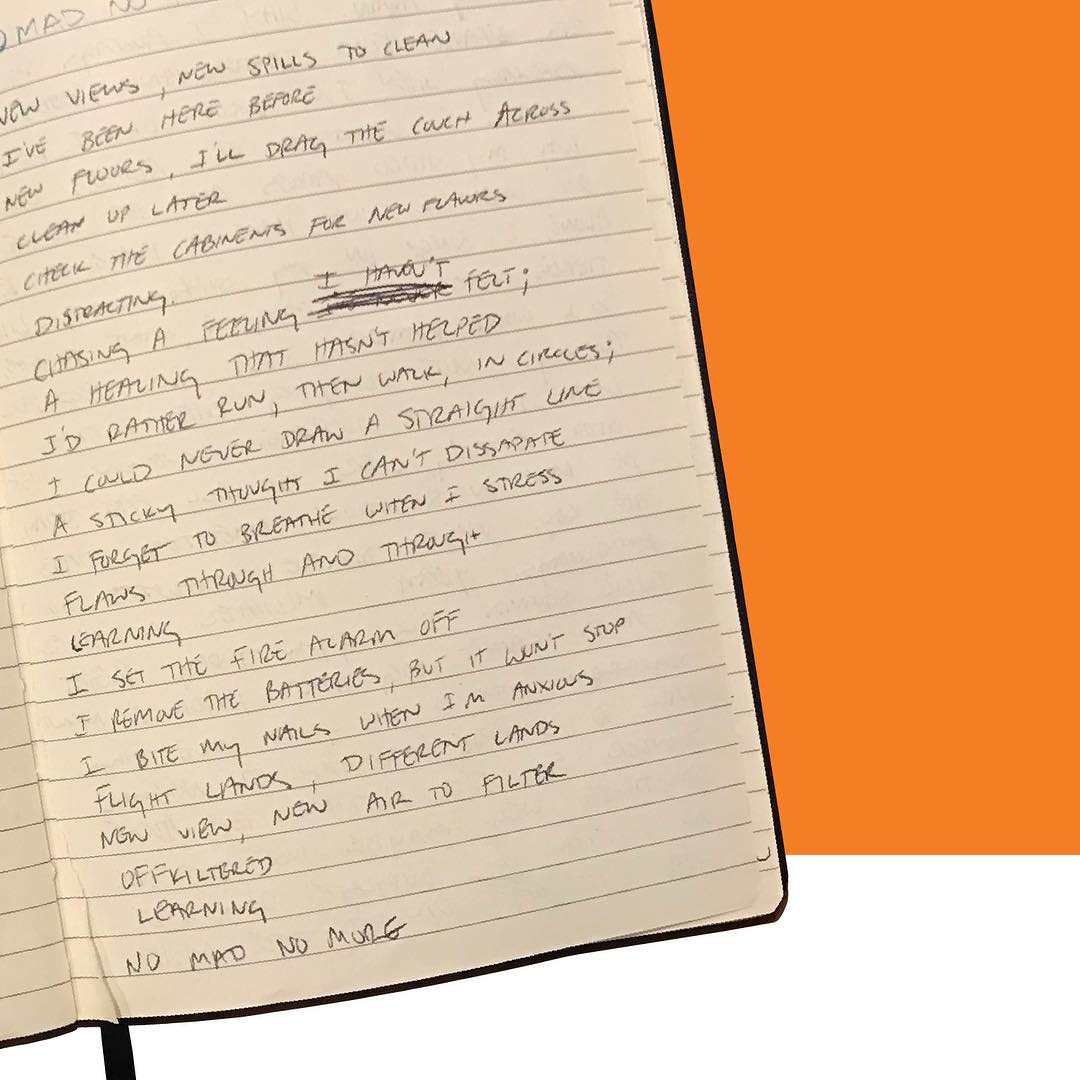 OMAD NO
NEW VIEWS, NEW SPILLS TO CLEAN
I'VE BEEN HERE BEFORE
NEW FLOORS, I'LL DRAG THE COUCH ACROSS
CLEAN UP LATER
CHECK THE CABINENTS FOR NEW FLAWRS
DISTRACTING.
I HAVEN'T
CHASING A FEELING FELT;
A HEALING THAT HASN'T HELPED
I'D RATHER RUN, THEN WALK, IN CIRCLES;
I COULD NEVER DRAW A STRAIGHT LINE
A STICKY THOUGHT I CAN'T DISSAPATE
I FORGET TO BREATHE WHEN I STRESS
FLAWS THROUGH AND THROUGH
LEARNING
I SET THE FIRE ALARM OFF
I REMOVE THE BATTERIES, BUT IT WONT STOP
I BITE MY NAILS WHEN I'M ANXIOUS
FLIGHT LANDS, DIFFERENT LANDS
NEW VIEW, NEW AIR TO FILTER
OFFKILTERED
LEARNING
NO MAD NO MORE